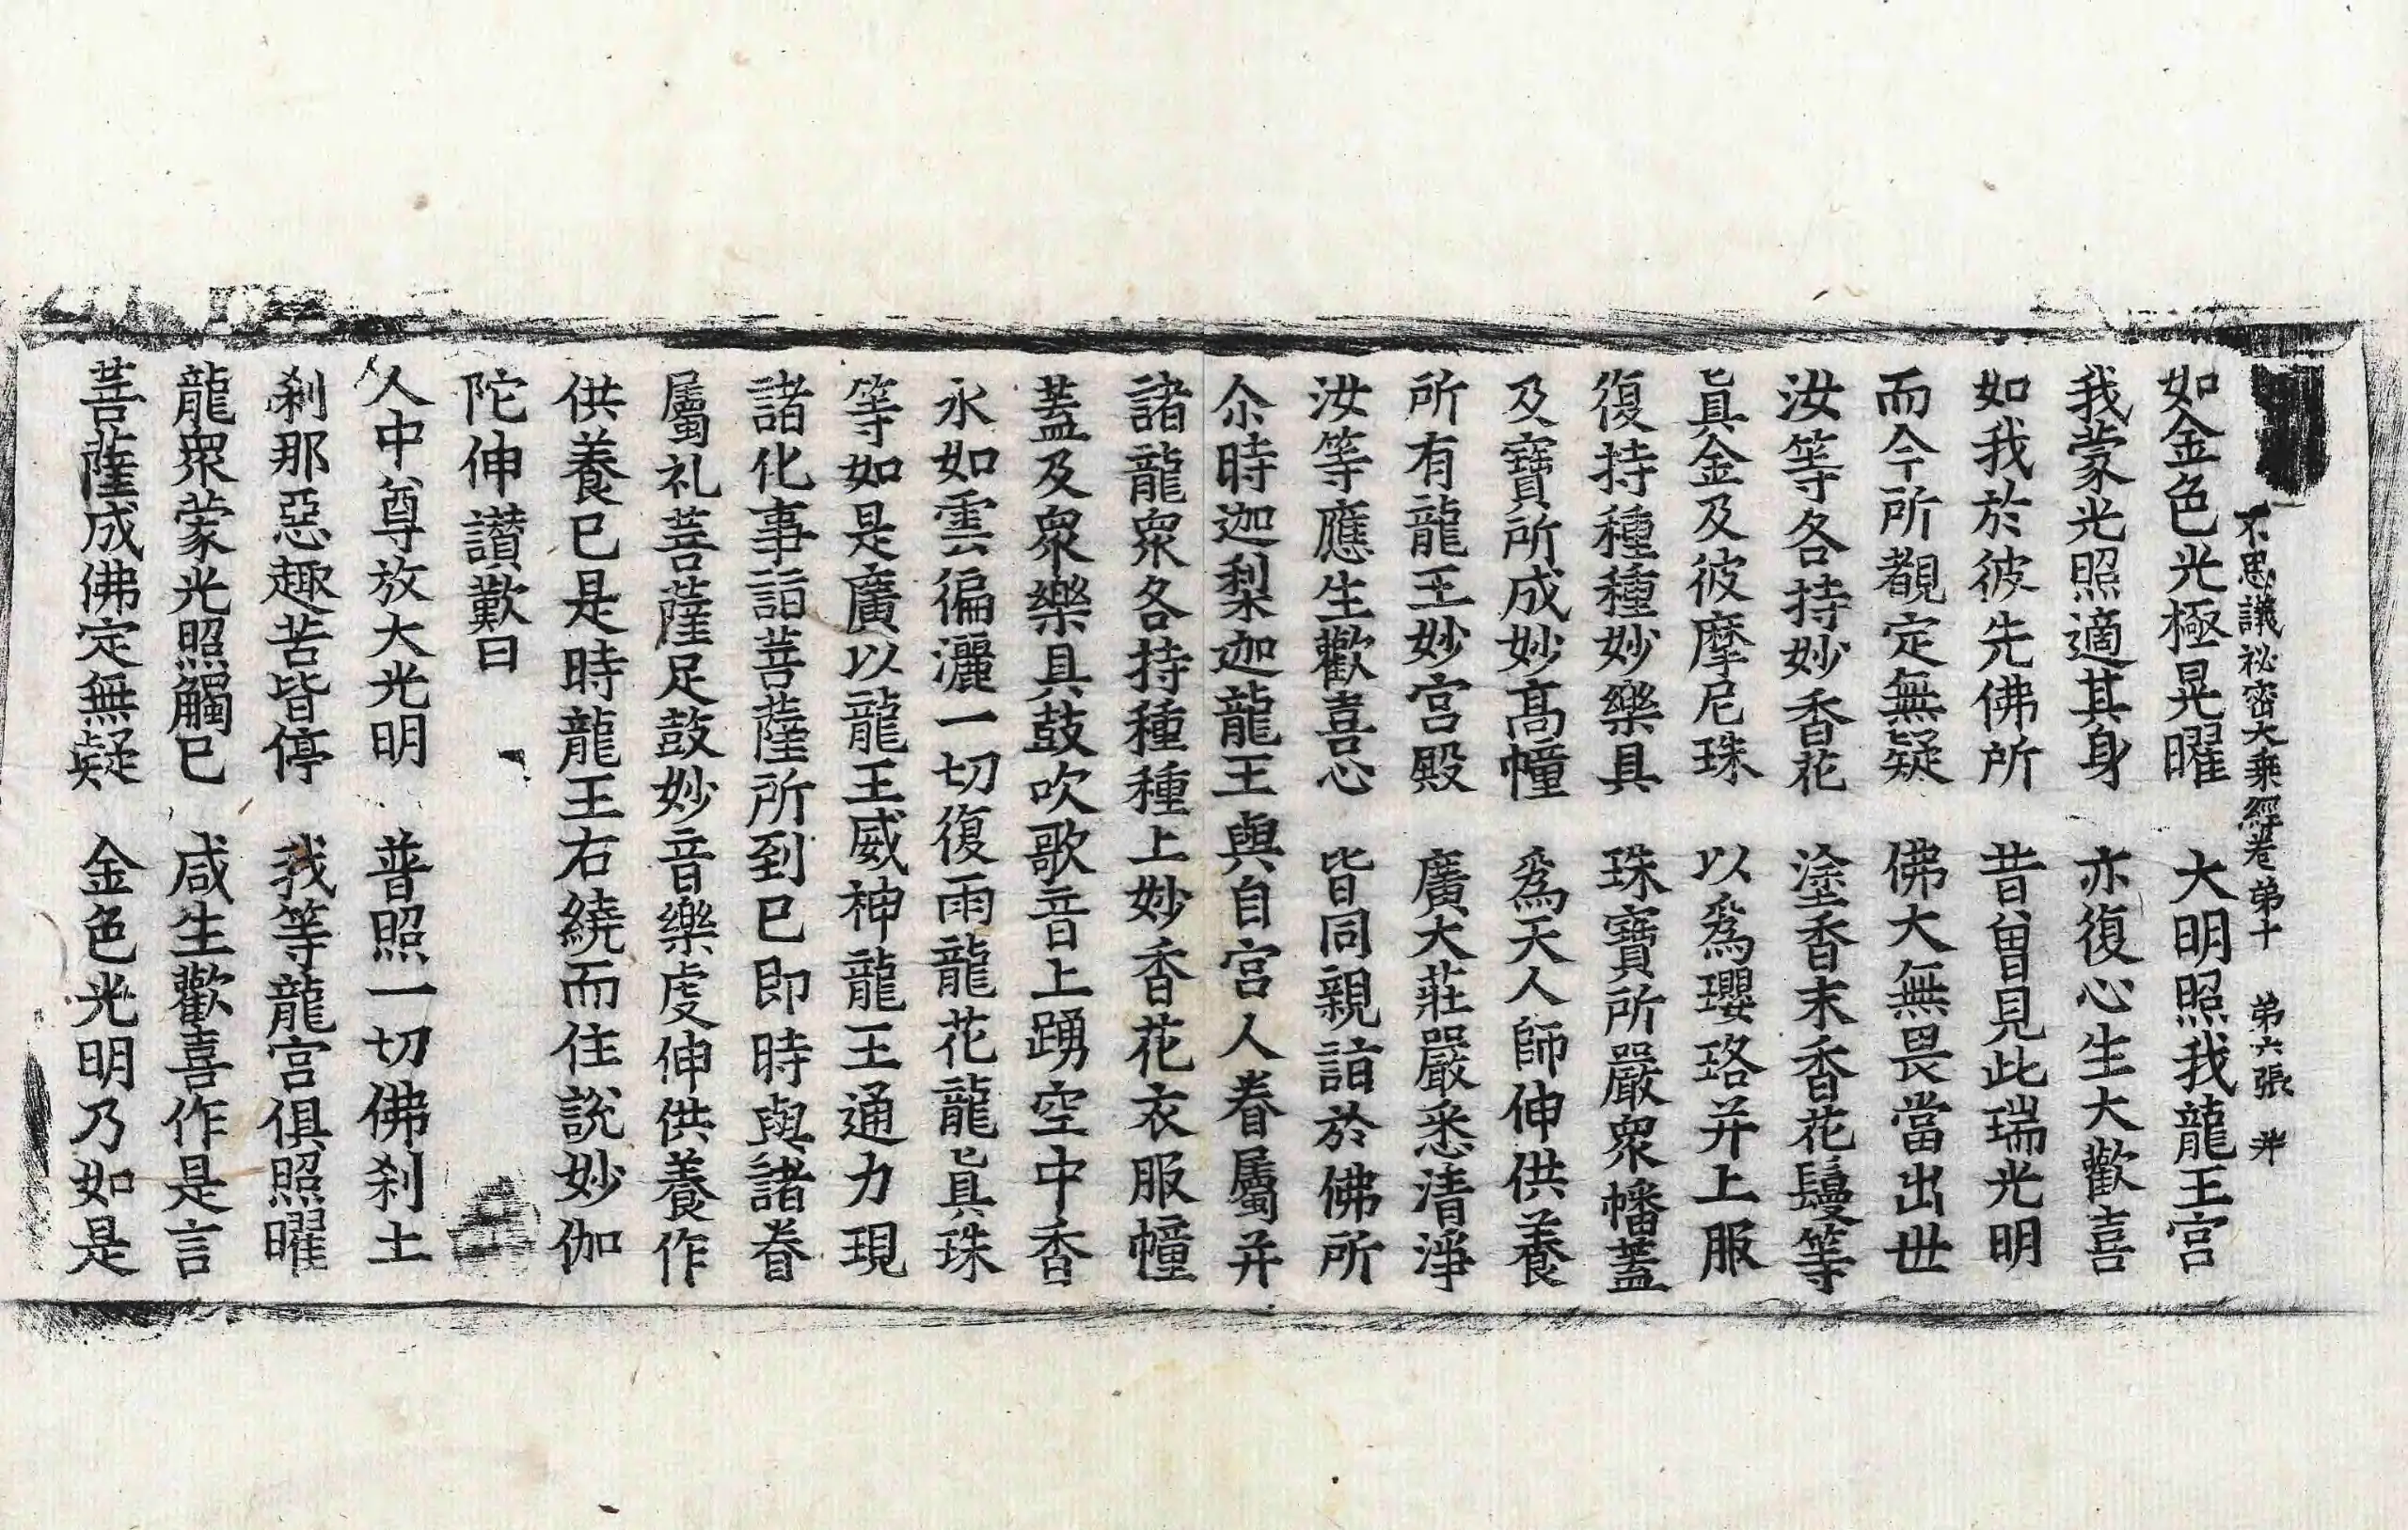 不思議祕密大乘經卷第十　第六張　𠦜
如金色光極晃曜　大明照我龍王宮
我蒙光照適其身　亦復心生大歡喜
如我於彼先佛所　昔曾見此瑞光明
而今所覩定無疑　佛大無畏當出世
汝等各持妙香花　塗香末香花鬘等
眞金及彼摩尼珠　以爲瓔珞并上服
復持種種妙樂具　珠寶所嚴衆幡蓋
及寶所成妙髙幢　爲天人師伸供養
所有龍王妙宮殿　廣大莊嚴悉清淨
汝等應生歡喜心　皆同親詣於佛所
尒時迦梨迦龍王與自宮人眷屬并
諸龍衆各持種種上妙香花衣服幢
蓋及衆樂具鼓吹歌音上踴空中香
水如雲徧灑一切復雨龍花龍眞珠
等如是廣以龍王威神龍王通力現
諸化事詣菩薩所到已即時與諸眷
屬礼菩薩足鼓妙音樂䖍伸供養作
供養已是時龍王右繞而住說妙伽
陀伸讃歎曰
人中尊放大光明　普照一切佛刹土
刹那惡趣苦皆停　我等龍宮俱照曜
龍衆蒙光照觸已　咸生歡喜作是言
菩薩成佛定無疑　金色光明乃如是